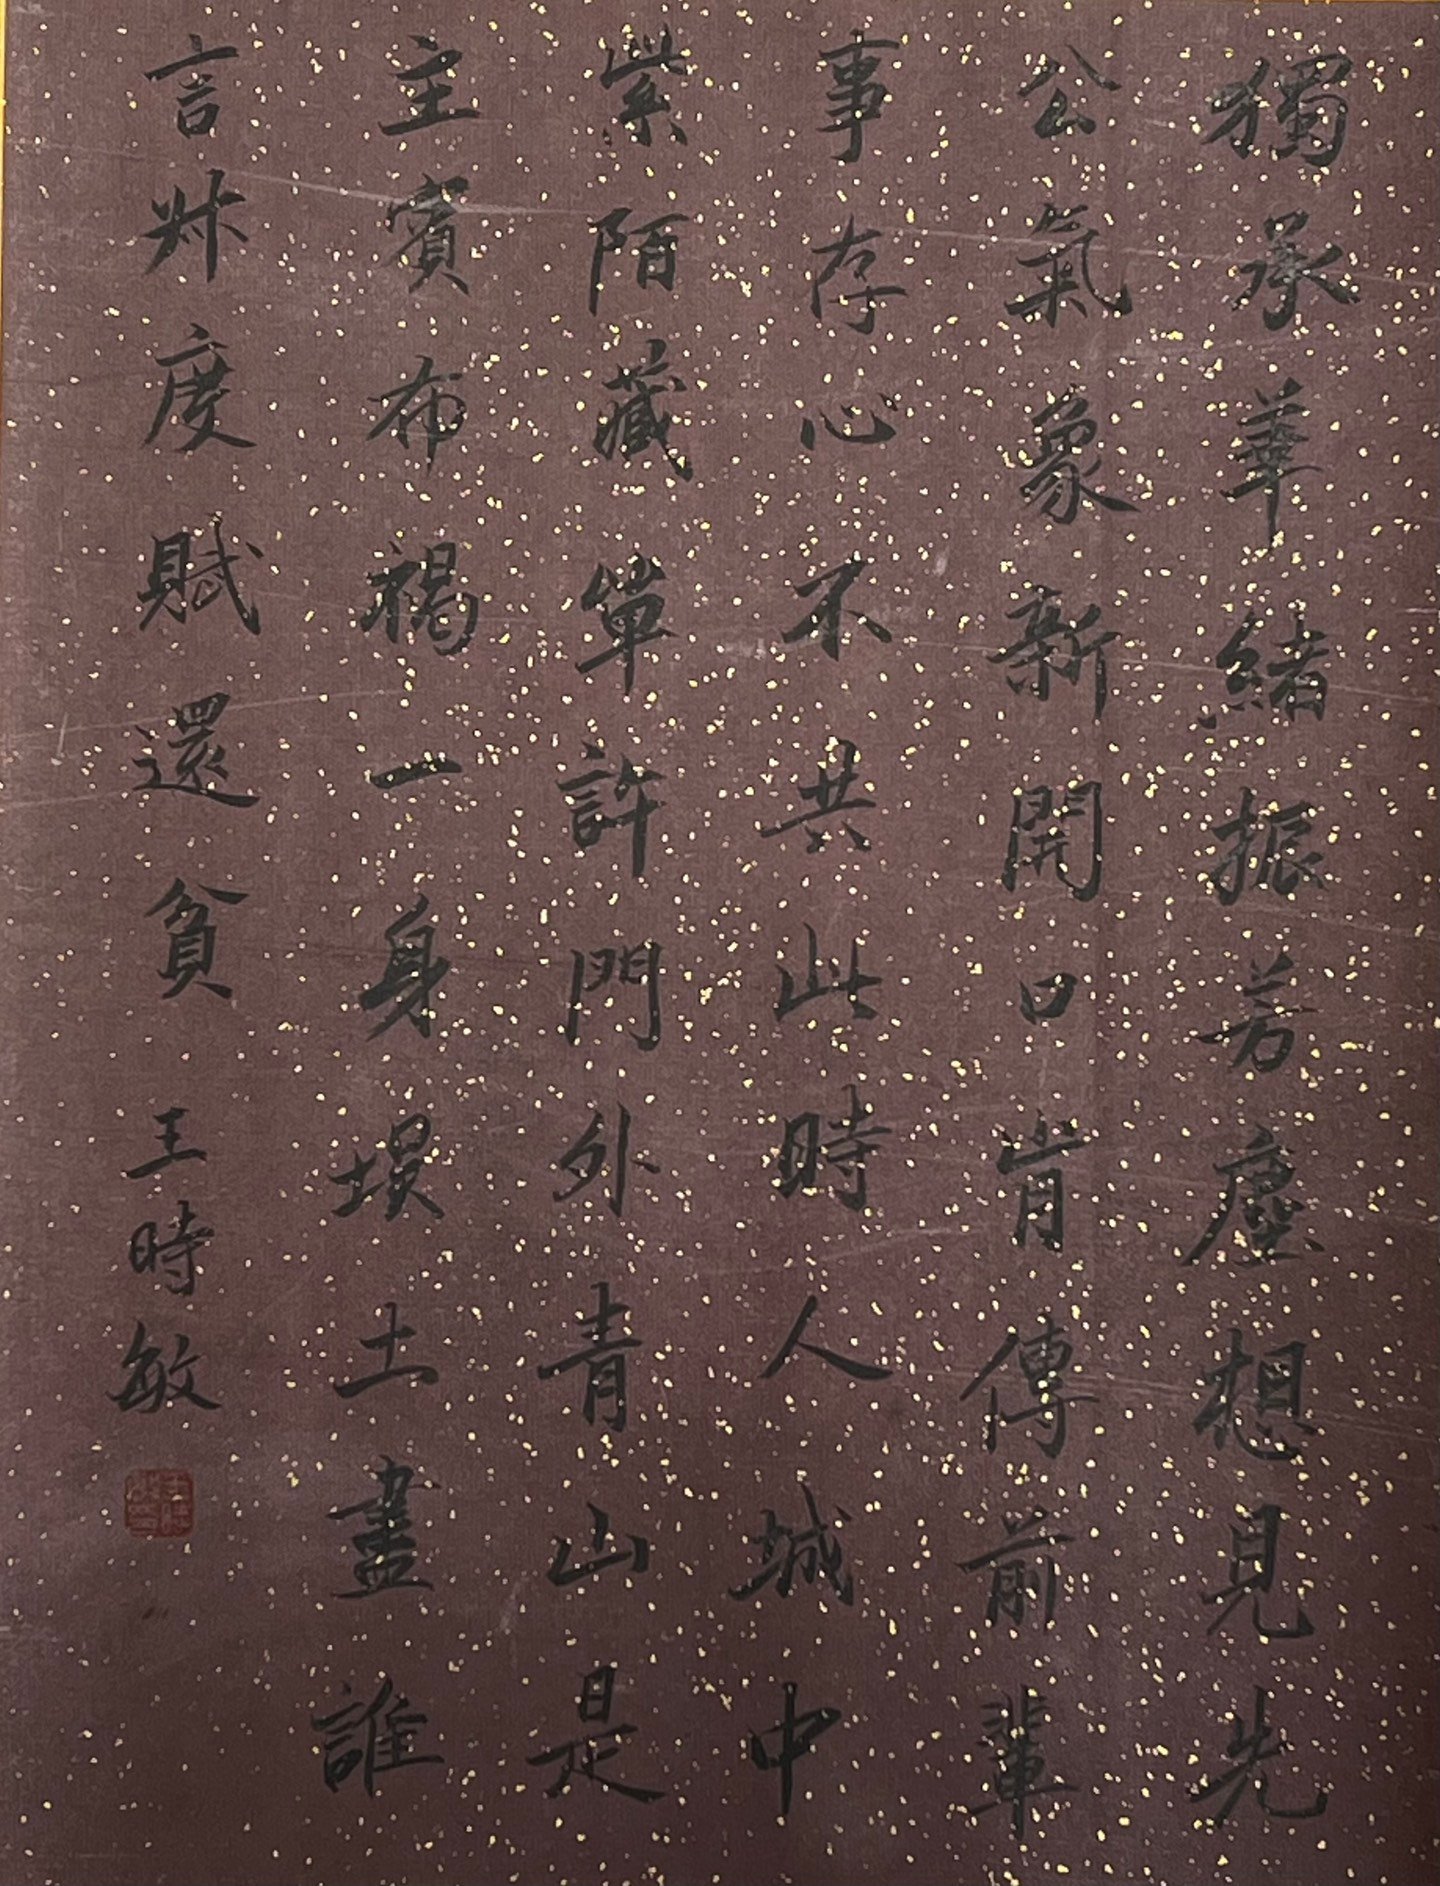 獨承華緒振芳塵想見先
公氣象新開口肯傳前輩
事存心不共此時人城中
紫陌藏單許門外青山是
主賓布褐一身塤土盡誰
言叔度賦還貧 王時敏